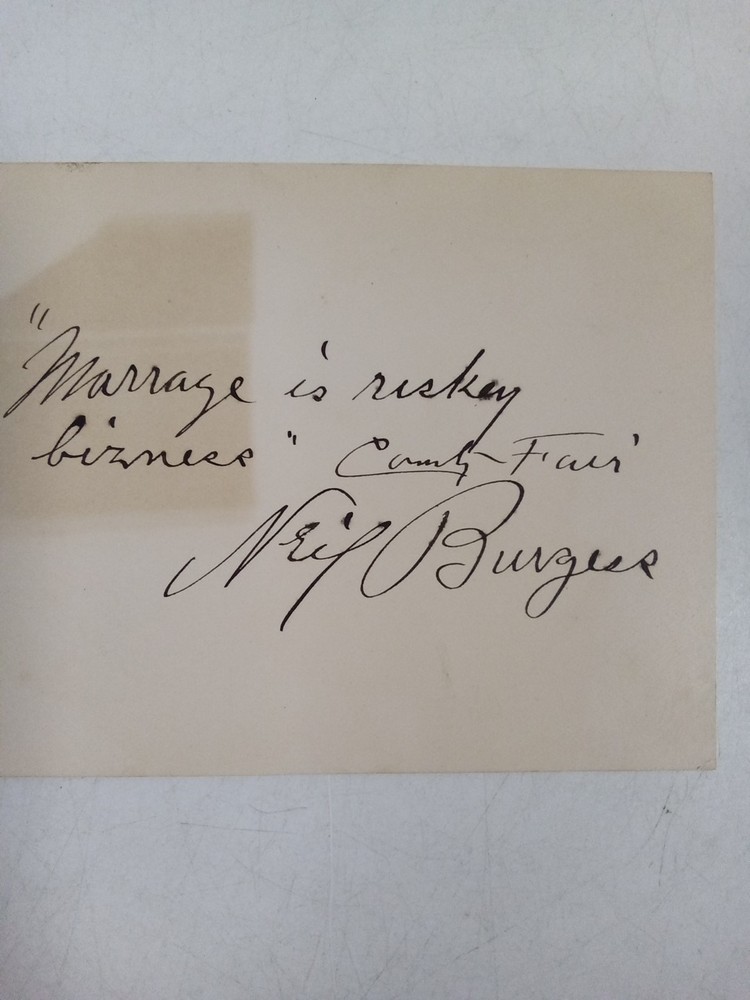 "Marrage is riskey
bizness" County Fair
Neil Burgess